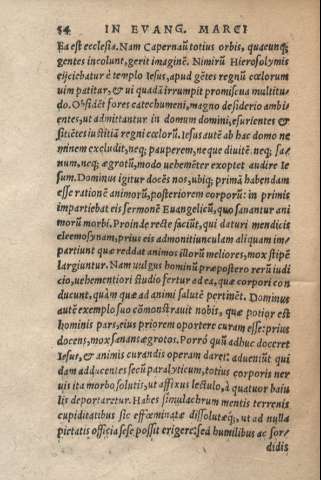 54 IN EVANG. MARCI
Ea est ecclesia. Nam Capernaũ totius orbis, quacunq;
gentes incolunt, gerit imaginẽ. Nimirũ Hierosolymis
eijciebatur è templo Iesus, apud gẽtes regnũ cœlorum
uim patitur, & ui quadã irrumpit promiscua multitu-
do. Obsidẽt fores catechumeni, magno desiderio ambi-
entes, ut admittantur in domum domini, esurientes &
sitiẽtes iustitiã regni cœlorũ. Iesus autẽ ab hac domo ne
minem excludit, neq; pauperem, neque diuitẽ, neq; sa-
num, neq; ægrotũ, modo uehemẽter exoptet audire Ie
sum. Dominus igitur docẽs nos, ubiq; primã habendam
esse rationẽ animorũ, posteriorem corporũ: in primis
impartiebat eis sermonẽ Euangelicũ, quo sanantur ani
morũ morbi. Proinde recte faciũt, qui daturi mendicis
eleemosynam, prius eis admonitiunculam aliquam im-
partiunt quæ reddat animos illorũ meliores, mox stipẽ
largiuntur. Nam uulgus hominũ præpostero rerũ iudi
cio, uehementiori studio fertur ad ea, quæ corpori con
ducunt, quàm quæ ad animi salutẽ pertinẽt. Dominus
autẽ exemplo suo cõmonstrauit nobis, quæ potior est
hominis pars, eius priorem oportere curam esse: prius
docens, mox sanans ægrotos. Porrò quũ adhuc doceret
Iesus, & animis curandis operam daret: adueniũt qui
dam adducentes secũ paralyticum, totius corporis ner
uis ita morbo solutis, ut affixus lectulo, à quatuor baiu
lis deportaretur. Habes simulachrum mentis terrenis
cupiditatibus sic effœminatæ dissolutæq;, ut ad nulla
pietatis officia sese possit erigere: sed humilibus ac sor-
didis